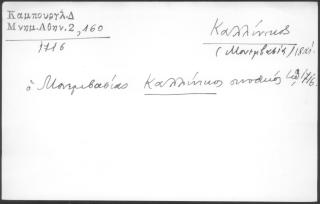 Καμπουργλ.Δ
Μνημ.Αθην.2,160
1716
Καλλίνικος
(Μονεμβασία)
ὁ Μονεμβασίας Καλλίνικος συνοδικός 1716.